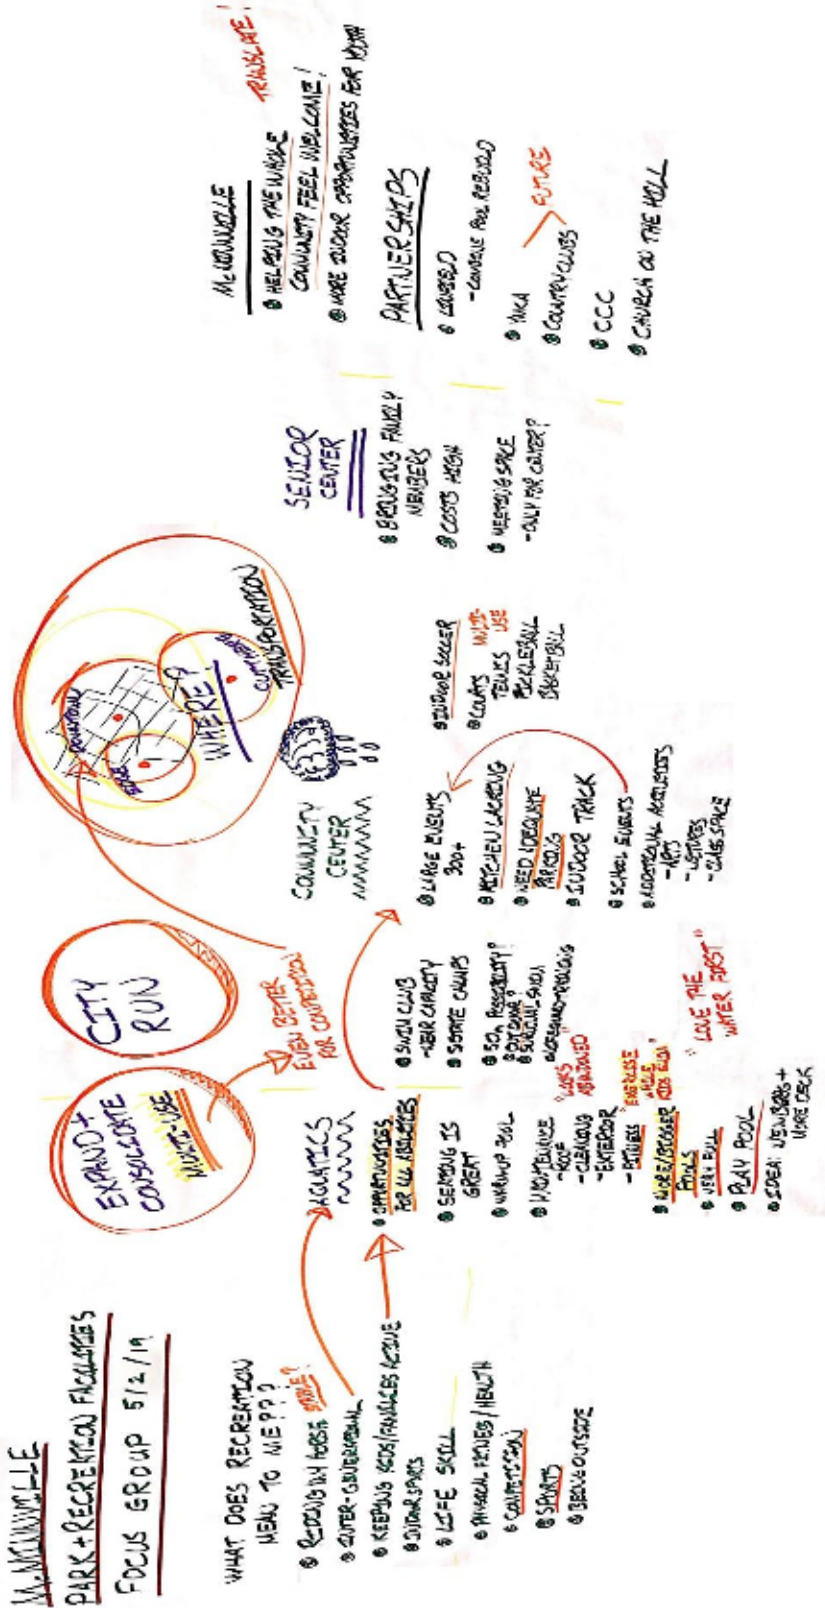 McMINNVILLE
PARK + RECREATION FACILITIES
FOCUS GROUP 5/2/19
WHAT DOES RECREATION
MEAN TO ME???
RIDING MY HORSE STABLE?
INTER-GENERATIONAL
KEEPING KIDS/FAMILIES ACTIVE
INDOOR SPORTS
LIFE SKILL
PHYSICAL FITNESS/HEALTH
COMPETITION
SPORTS
BEING OUTSIDE
EXPAND +
CONSOLIDATE
MULTI-USE
CITY
RUN
EVEN BETTER
FOR COMPETITION
AQUATICS
OPPORTUNITIES
FOR ALL ABILITIES
SEATING IS
GREAT
WARMUP POOL
MAINTENANCE
-ROOF
-CLEANING
-EXTERIOR
"LOOKS
ABANDONED"
-FITNESS
"EXERCISE
WHILE
KIDS SWIM"
MORE/BIGGER
POOLS
VERY FULL
PLAY POOL
IDEA: NEWBERG +
MORE DECK
SWIM CLUB
-NEAR CAPACITY
STATE CHAMPS
50M POSSIBILITY?
OUTDOOR?
SURVIVAL SWIM
"LOVE THE
WATER FIRST"
DOWNTOWN
EDGE
WHERE?
TRANSPORTATION
COMMUNITY
CENTER
LARGE EVENTS
300+
KITCHEN LACKING
NEED ADEQUATE
PARKING
INDOOR TRACK
SCHOOL EVENTS
ADDITIONAL ACTIVITIES
-ARTS
-LECTURES
-CLASS SPACE
INDOOR SOCCER
COURTS MULTI-
USE
TENNIS
PICKLEBALL
BASKETBALL
SENIOR
CENTER
BRINGING FAMILY
MEMBERS
COSTS HIGH
MEETING SPACE
-ONLY FOR CENTER?
McMINNVILLE
HELPING THE WHOLE
COMMUNITY FEEL WELCOME!
TRANSLATE!
MORE INDOOR OPPORTUNITIES FOR YOUTH
PARTNERSHIPS
LINFIELD
-CONSIDER POOL REBUILD
YMCA
COUNTRY CLUBS
FUTURE
CCC
CHURCH ON THE HILL